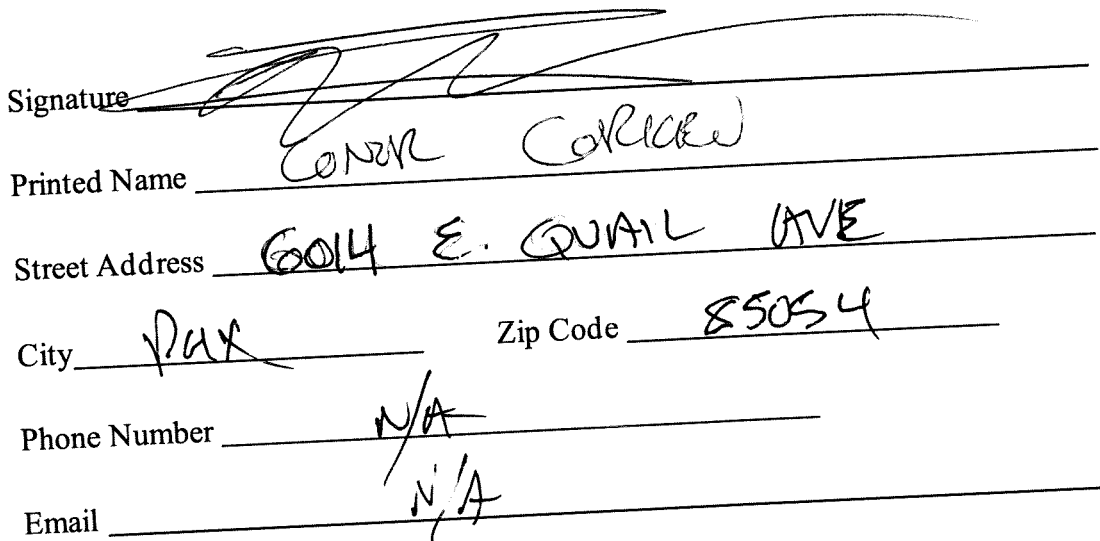 Signature
Printed Name CONOR
Street Address 6014 E. QUAIL AVE
City PHX Zip Code 85054
Phone Number N/A
Email N/A